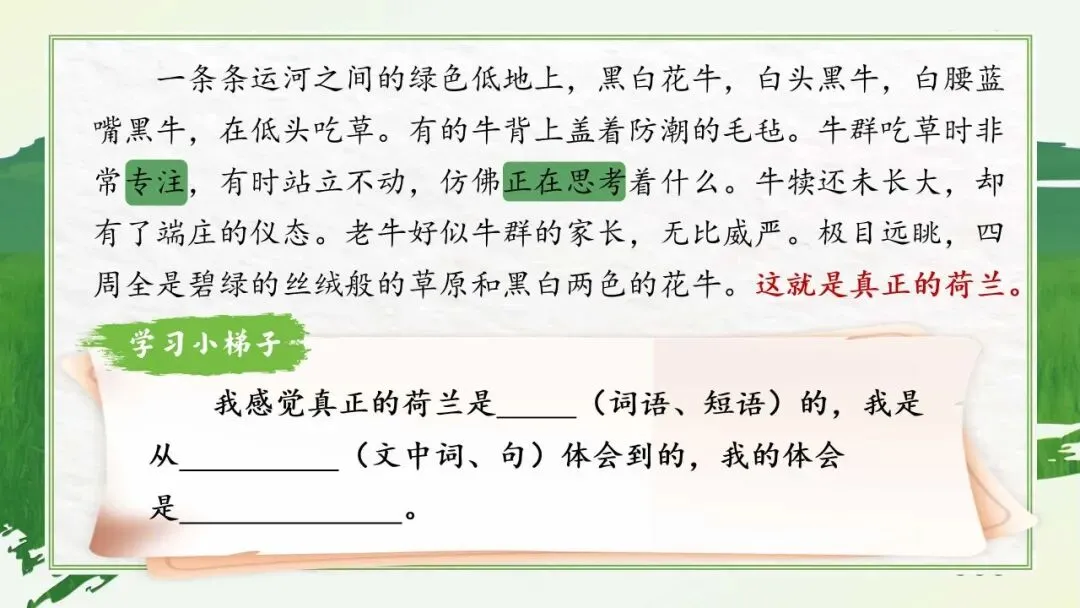 一条条运河之间的绿色低地上，黑白花牛，白头黑牛，白腰蓝
嘴黑牛，在低头吃草。有的牛背上盖着防潮的毛毡。牛群吃草时非
常专注，有时站立不动，仿佛正在思考着什么。牛犊还未长大，却
有了端庄的仪态。老牛好似牛群的家长，无比威严。极目远眺，四
周全是碧绿的丝绒般的草原和黑白两色的花牛。这就是真正的荷兰。
学习小梯子
我感觉真正的荷兰是_____（词语、短语）的，我是
从__________（文中词、句）体会到的，我的体会
是______________。